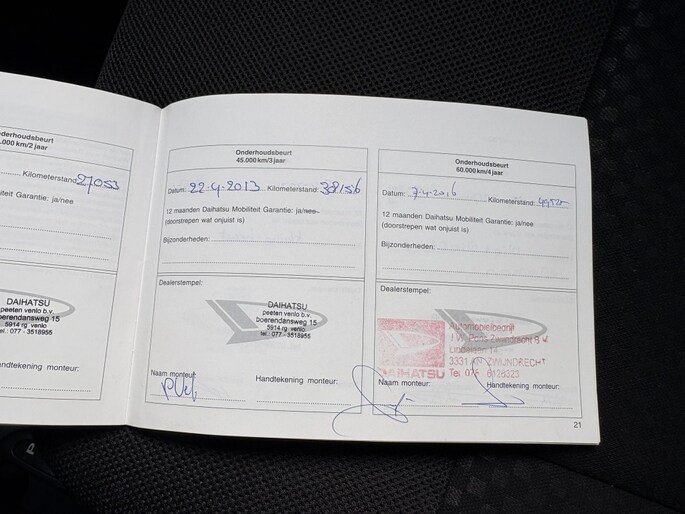 derhoudsbeurt
.000 km/2 jaar
Kilometerstand 27053
iteit Garantie: ja/nee
is)
DAIHATSU
peeten venlo b.v.
boerendansweg 15
5914 rg venlo
tel.: 077 - 3518955
Handtekening monteur:
Onderhoudsbeurt
45.000 km/3 jaar
Datum: 22-4-2013 Kilometerstand: 38156
12 maanden Daihatsu Mobiliteit Garantie: ja/nee
(doorstrepen wat onjuist is)
Bijzonderheden:
Dealerstempel:
DAIHATSU
peeten venlo b.v.
boerendansweg 15
5914 rg venlo
tel.: 077 - 3518955
Naam monteur:
Handtekening monteur:
Onderhoudsbeurt
60.000 km/4 jaar
Datum: 7-4-2016 Kilometerstand:
12 maanden Daihatsu Mobiliteit Garantie: ja/nee
(doorstrepen wat onjuist is)
Bijzonderheden:
Dealerstempel:
Automobielbedrijf
Zwijndrecht B.V.
Lindelaan 14
3331 AN ZWIJNDRECHT
DAIHATSU Tel. 078 - 6128323
Naam monteur:
Handtekening monteur:
21
P